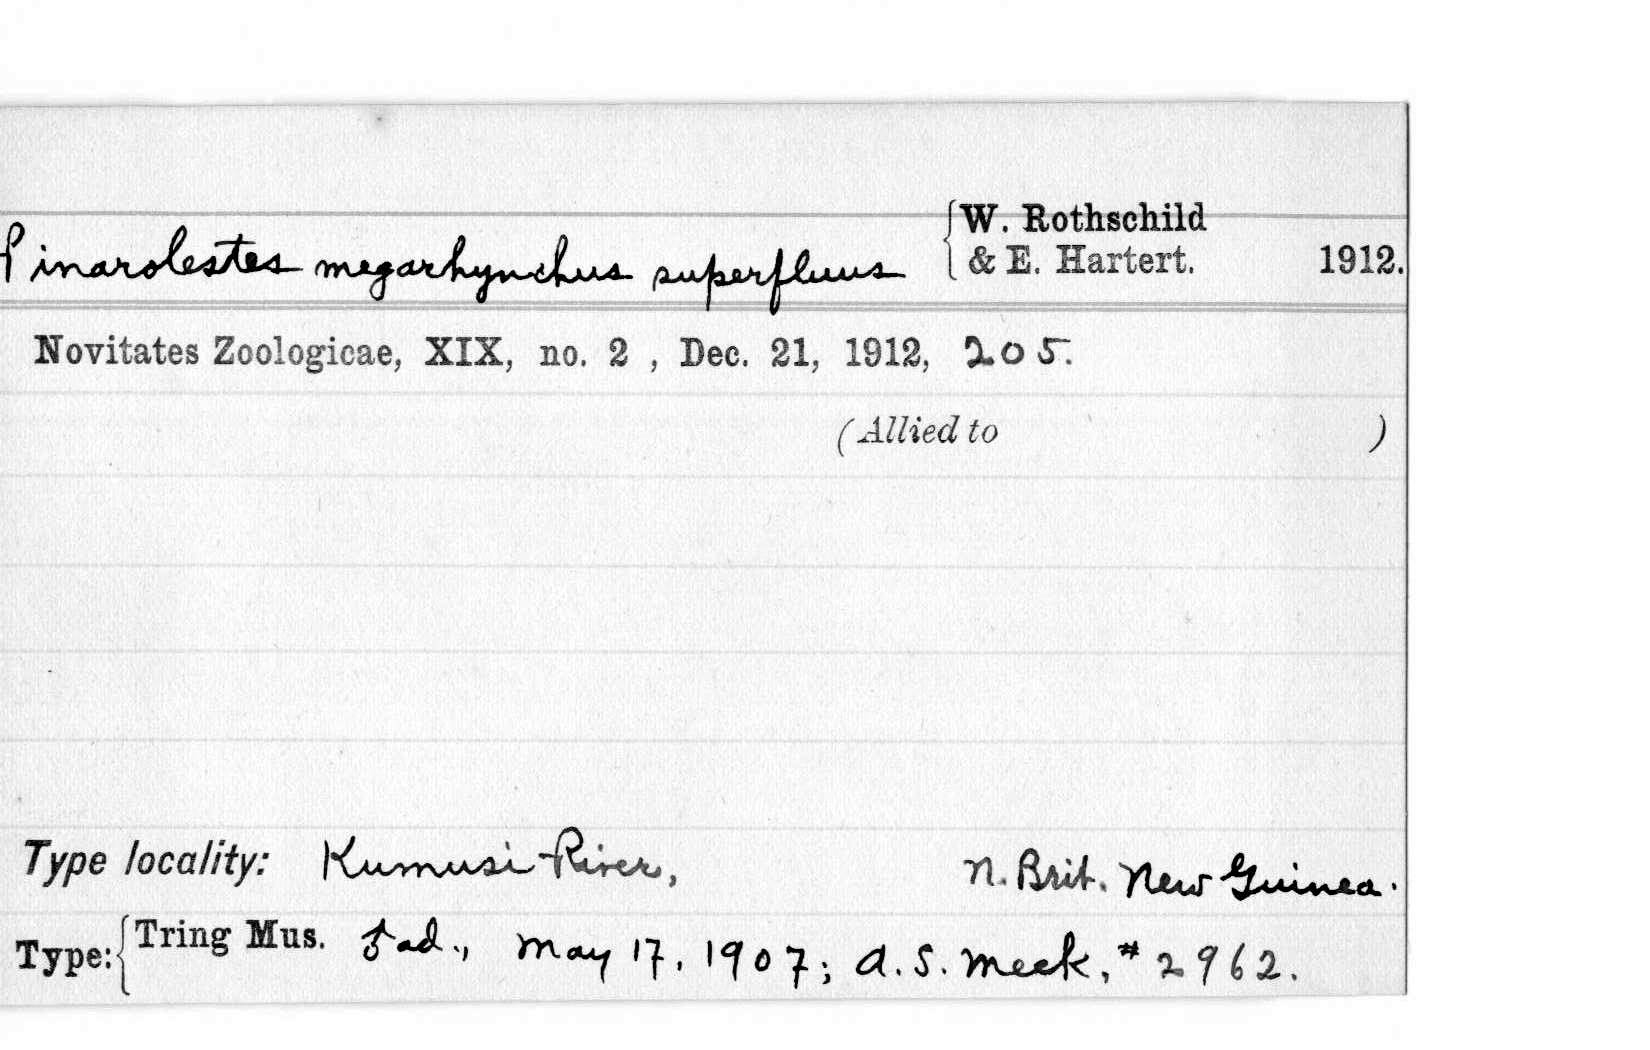 Pinarolestes megarhynchus superfluus {W. Rothschild
& E. Hartert. 1912.
Novitates Zoologicae, XIX, no. 2 , Dec. 21, 1912, 205.
(Allied to )
Type locality: Kumusi River, N. Brit. New Guinea.
Type: {Tring Mus. ♂ ad., May 17, 1907; A. S. Meek, # 2962.